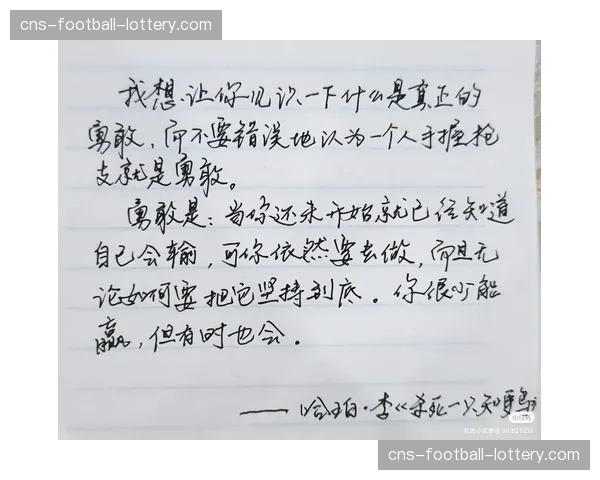 cns-football-lottery.com
我想让你见识一下什么是真正的
勇敢，而不要错误地认为一个人手握枪
支就是勇敢。
勇敢是：当你还未开始就已经知道
自己会输，可你依然要去做，而且无
论如何要把它坚持到底。你很少能
赢，但有时也会。
——哈珀·李《杀死一只知更鸟》
cns-football-lottery.com